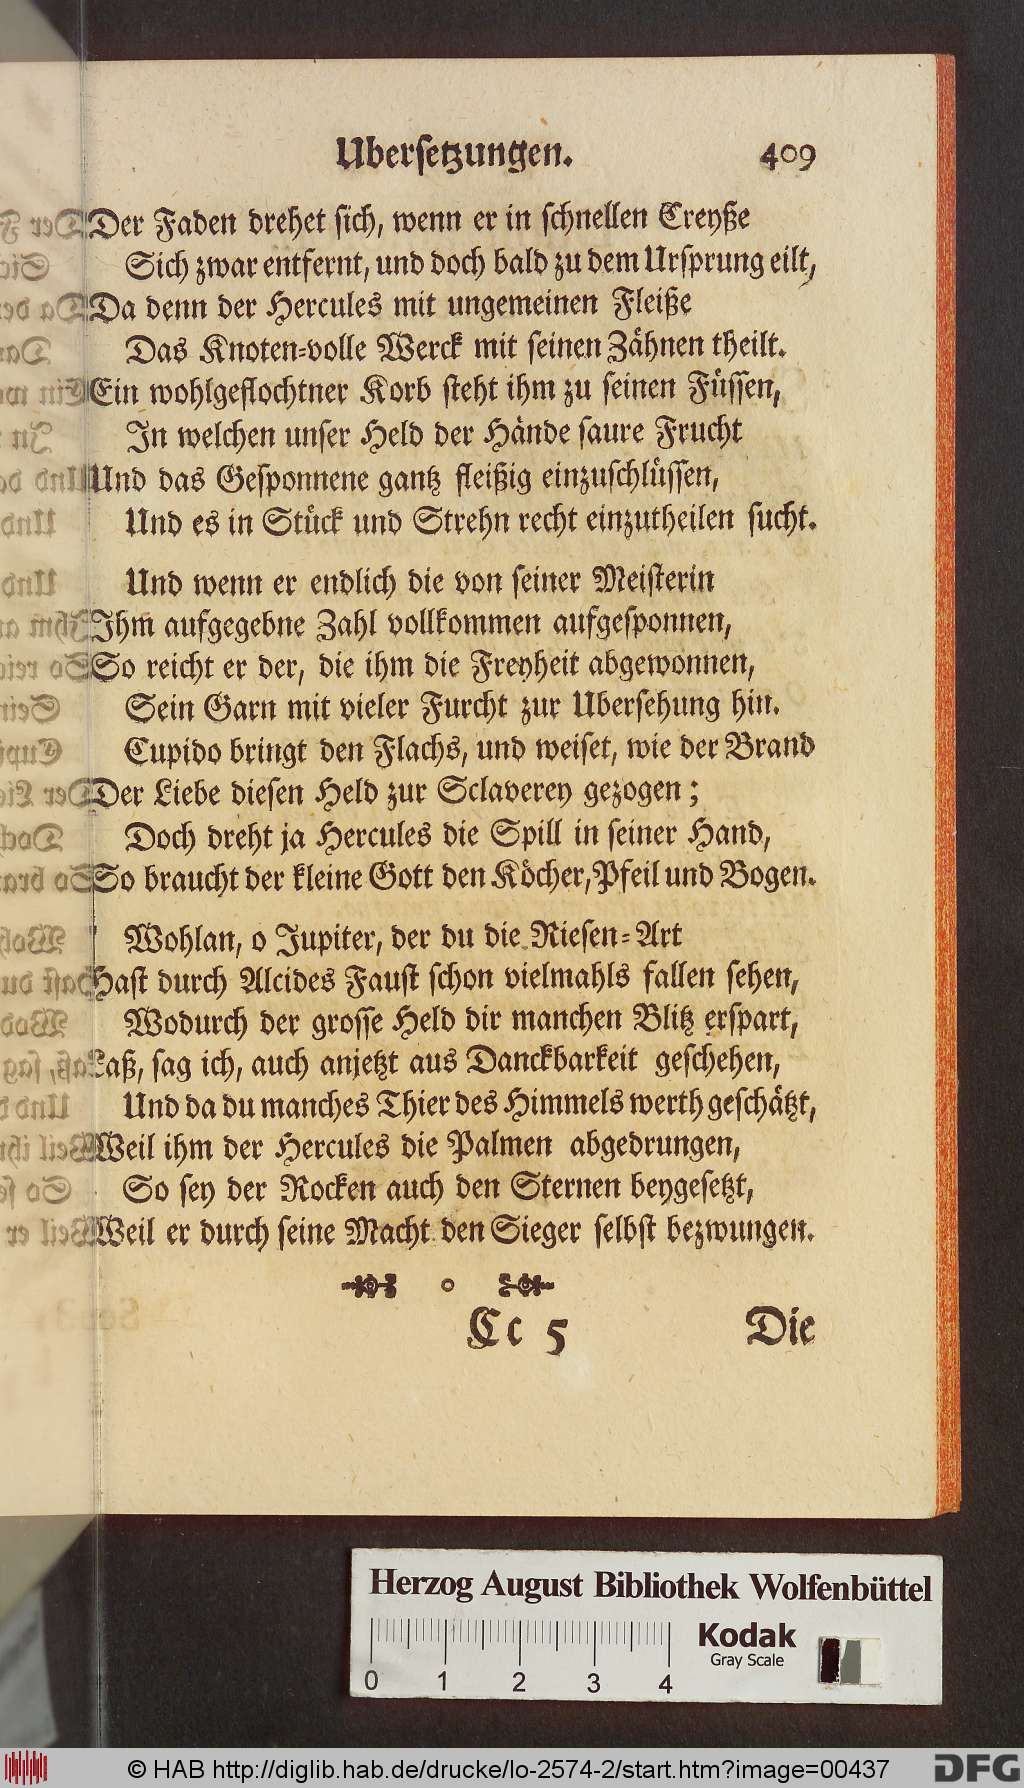 Ubersetzungen. 409
Der Faden drehet sich, wenn er in schnellen Creyße
Sich zwar entfernt, und doch bald zu dem Ursprung eilt,
Da denn der Hercules mit ungemeinen Fleiße
Das Knoten-volle Werck mit seinen Zähnen theilt.
Ein wohlgeflochtner Korb steht ihm zu seinen Füssen,
In welchen unser Held der Hände saure Frucht
Und das Gesponnene gantz fleißig einzuschlüssen,
Und es in Stück und Strehn recht einzutheilen sucht.
Und wenn er endlich die von seiner Meisterin
Ihm aufgegebne Zahl vollkommen aufgesponnen,
So reicht er der, die ihm die Freyheit abgewonnen,
Sein Garn mit vieler Furcht zur Ubersehung hin.
Cupido bringt den Flachs, und weiset, wie der Brand
Der Liebe diesen Held zur Sclaverey gezogen;
Doch dreht ja Hercules die Spill in seiner Hand,
So braucht der kleine Gott den Köcher, Pfeil und Bogen.
Wohlan, o Jupiter, der du die Riesen-Art
Hast durch Alcides Faust schon vielmahls fallen sehen,
Wodurch der grosse Held dir manchen Blitz erspart,
Laß, sag ich, auch anjetzt aus Danckbarkeit geschehen,
Und da du manches Thier des Himmels werth geschätzt,
Weil ihm der Hercules die Palmen abgedrungen,
So sey der Rocken auch den Sternen beygesetzt,
Weil er durch seine Macht den Sieger selbst bezwungen.
Cc 5 Die
Herzog August Bibliothek Wolfenbüttel
Kodak
Gray Scale
0 1 2 3 4
© HAB http://diglib.hab.de/drucke/lo-2574-2/start.htm?image=00437
DFG